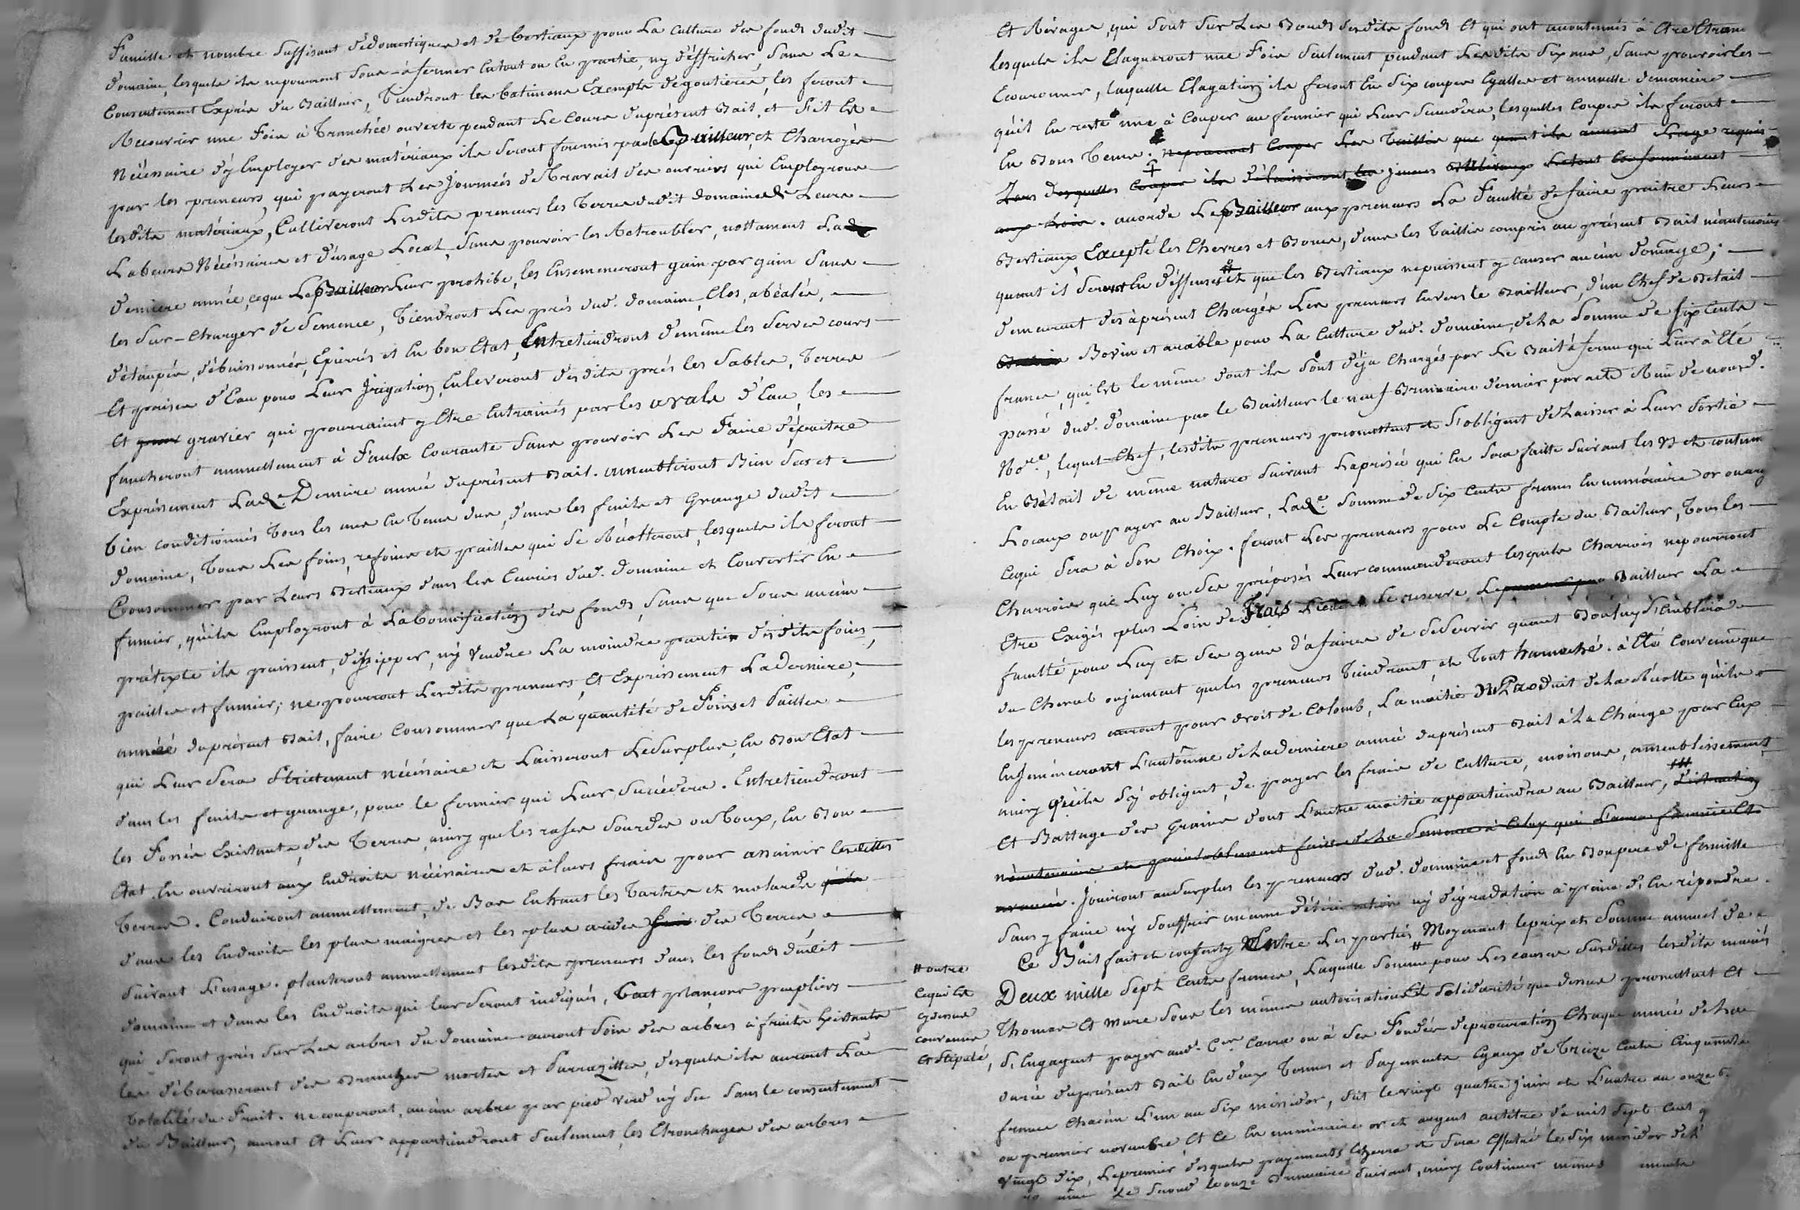 famille et nombre suffisant de domestiques et de bestiaux pour la culture des fonds dudit
domaine, lesquels ils ne pourront sous-afermer en tout ou en partie, ny déffricher, sans le
consentement Exprès du Bailleur, Tiendront les batimens Exempts de goutières, les feront
Recouvrir une fois à tranchée ouverte pendant le cours du présent Bail, et s'il est
Nécéssaire d'y Employer des matériaux ils seront fournis par le Bailleur, et charroyés
par les preneurs, qui payeront les journées de travail des ouvriers qui Employerons
lesdits matériaux, Cultiveront lesdits preneurs les Terres dudit domaine de Leurs
Labeurs Nécéssaires et d'usage Local, sans pouvoir les Retroubler, nottament La de
derniere année, ce que Le Bailleur Leur prohibe, les Ensemenceront gain par gain sans
les sur-charger de semence, Tiendront les prés dud. domaine, Clos,
d'étaupés, débuissonnés, Epierrés et En bon Etat, Entretiendront de même les serves cours
Et prises d'Eau pour Leur Irigation, Enleveront desdits prés les sables, Terres
et gravier qui pourraient y Etre Entrainés par les d'Eau, les
faucheront annuellement à faulx courante sans pouvoir les faire dépaitre
Expressement Lade. Derniere année du présent Bail. ameubleront Bien secs et
bien conditionnés Tous les ans En Tems dus, dans les fenils et Grange dudit
domaine, Tous les foins, refoins et pailles qui se Récolteront, lesquels ils feront
Consommer par leurs Bestiaux dans les Ecuries dud. domaine et Convertir En
fumier, qu'ils Employront à La bonification des fonds, sans que sous aucun
prétexte ils puissent, dissipper, ny vendre La moindre partie desdits foins,
pailles et fumier; ne pourront lesdits preneurs, Et Expressement La derniere,
année du présent Bail, faire Consommer que La quantité de foins et Pailles
qui Leur sera strictement nécéssaire et Laisseront Le surplus, En Bon Etat
dans les fenils et grange, pour le fermier qui Leur succèdera. Entretiendront
les fossés Existants, des Terres, ainsy que les rases sourdes ou Toux, En Bon
Etat En ouvriront aux Endroits nécéssaires et à leurs frais pour assainir lesdittes
Terres. Conduiront annuellement, de Bas En haut les Tartres et
dans les Endroits les plus maigres et les plus arides des Terres
suivant L'usage. planteront annuellement lesdits preneurs dans les fonds dudit
domaine et dans les Endroits qui leur seront indiqués, Cent plançons peupliers
qui seront pris sur les arbres du domaine auront soin des arbres à fruits Existants
les débarasseront des branches mortes et Parrazittes, desquels ils auront La
totalité du fruit. ne couperont, aucun arbre par pied verd ny sec sans le consentement
du Bailleur, auront Et Leur appartiendront seulement, les Etronchages des arbres
Et Rivages, qui sont sur les Bords desdits fonds Et qui ont accoutumés à Etre
lesquels ils Elagueront une fois seulement pendant lesdits six ans, sans pouvoir les
Ecouronner, laquelle Elagation ils feront En six coupes Egalles et annuelle de maniere
qu'il En reste une à couper au fermier qui Leur succèdera, lesquelles coupes ils feront
En Bons Tems.
accorde Le Bailleur aux preneurs La Faculté de faire paitre Leurs
Bestiaux Excepté les Chevres et Boucs, dans les Taillis compris au présent Bail néantmoins
quant il seront En déffenses et que les Bestiaux ne puissent y causer aucun domage;
demeurent dès àprésent Chargés Les preneurs Envers le Bailleur, d'un Chef de Bétail
Bovin et arable pour La Culture dud. domaine, de La somme de six Cents
francs, qui Est le même dont ils sont déja chargés par le Bail à ferme qui Leur à Eté
passé dud. domaine par le Bailleur le neuf Brumaire dernier par acte Reçu de nousd.
Nore, lequel Chef, lesdits preneurs promettent et s'obligent de Laisser à Leur sortie
En Bétail de même nature suivant La prisée qui En sera faitte suivant les us et coutumes
Locaux ou payer au Bailleur, Lade. somme de six Cents francs En numéraire or ou arg
ce qui sera à son Choix. feront Les preneurs pour Le Compte du Bailleur, Tous les
Charrois que Luy ou ses préposés Leur commanderont lesquels Charrois ne pourront
Etre Exigés plus Loin de Trois Lieues. se reserve Le Bailleur La
faculté pour Luy et ses gens d'afaires de se servir quant Bon Luy Semblera
du Cheval ou jument que les preneurs Tiendront, et Tout harnaché. à Eté convenu que
les preneurs auront pour droit de Colonb, La moitié du Produit de La Récolte qu'ils
Ensemenceront L'automne de La derniere année du présent Bail à La Charge par Eux
ainsy qu'ils s'y obligent, de payer les frais de Culture, moissons, ameublissement
Et Battage des Grains dont L'autre moitié appartiendra au Bailleur,
Jouiront au surplus les preneurs dud. domaine et fonds En Bons peres de famille
sans y faire ny souffrir aucune ny dégradation à peine d'En répondre.
Ce Bail fait et Convenu Entre Les parties Moyenant le prix et Somme annuel de
Deux mille Sept Cents francs, Laquelle somme pour Les causes susdittes lesdits mariés
Thomas Et Mure sous les mêmes autorisations Et solidarité que dessus promettent Et
s'Engagent payer aud. Cen Carra ou à ses Fondés de procuration Chaque année de La
durée du présent Bail En deux Termes et payements Egaux de Treize Cents Cinquante
francs chacun L'un au six messidor, soit le vingt quatre juin et L'autre au onze B.
ou premier novembre, Et Ce En numéraire or et argent au titre de mil sept Cent q
vingt dix, Le premier desquels payements Echerra et sera Effectué le six messidor de L'
# outre
ce qui Est
cy dessus
convenu
Et stipulé,